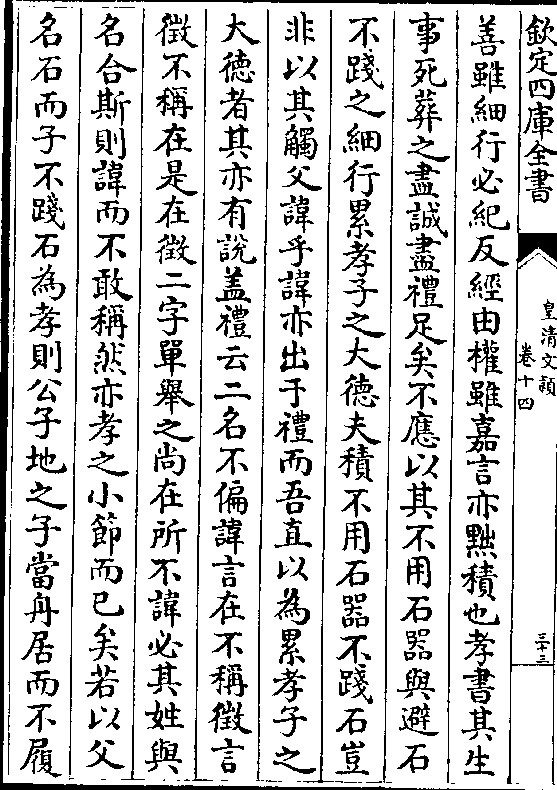 欽定四庫全書
皇清文穎
卷十四
三十三
善雖細行必紀反經由權雖嘉言亦黜積也孝書其生
事死葬之盡誠盡禮足矣不應以其不用石器與避石
不踐之細行累孝子之大德夫積不用石器不踐石豈
非以其觸父諱乎諱亦出于禮而吾直以為累孝子之
大德者其亦有說盖禮云二名不偏諱言在不稱徵言
徵不稱在是在徵二字單舉之尚在所不諱必其姓與
名合斯則諱而不敢稱然亦孝之小節而已矣若以父
名石而子不踐石為孝則公子地之子當舟居而不履